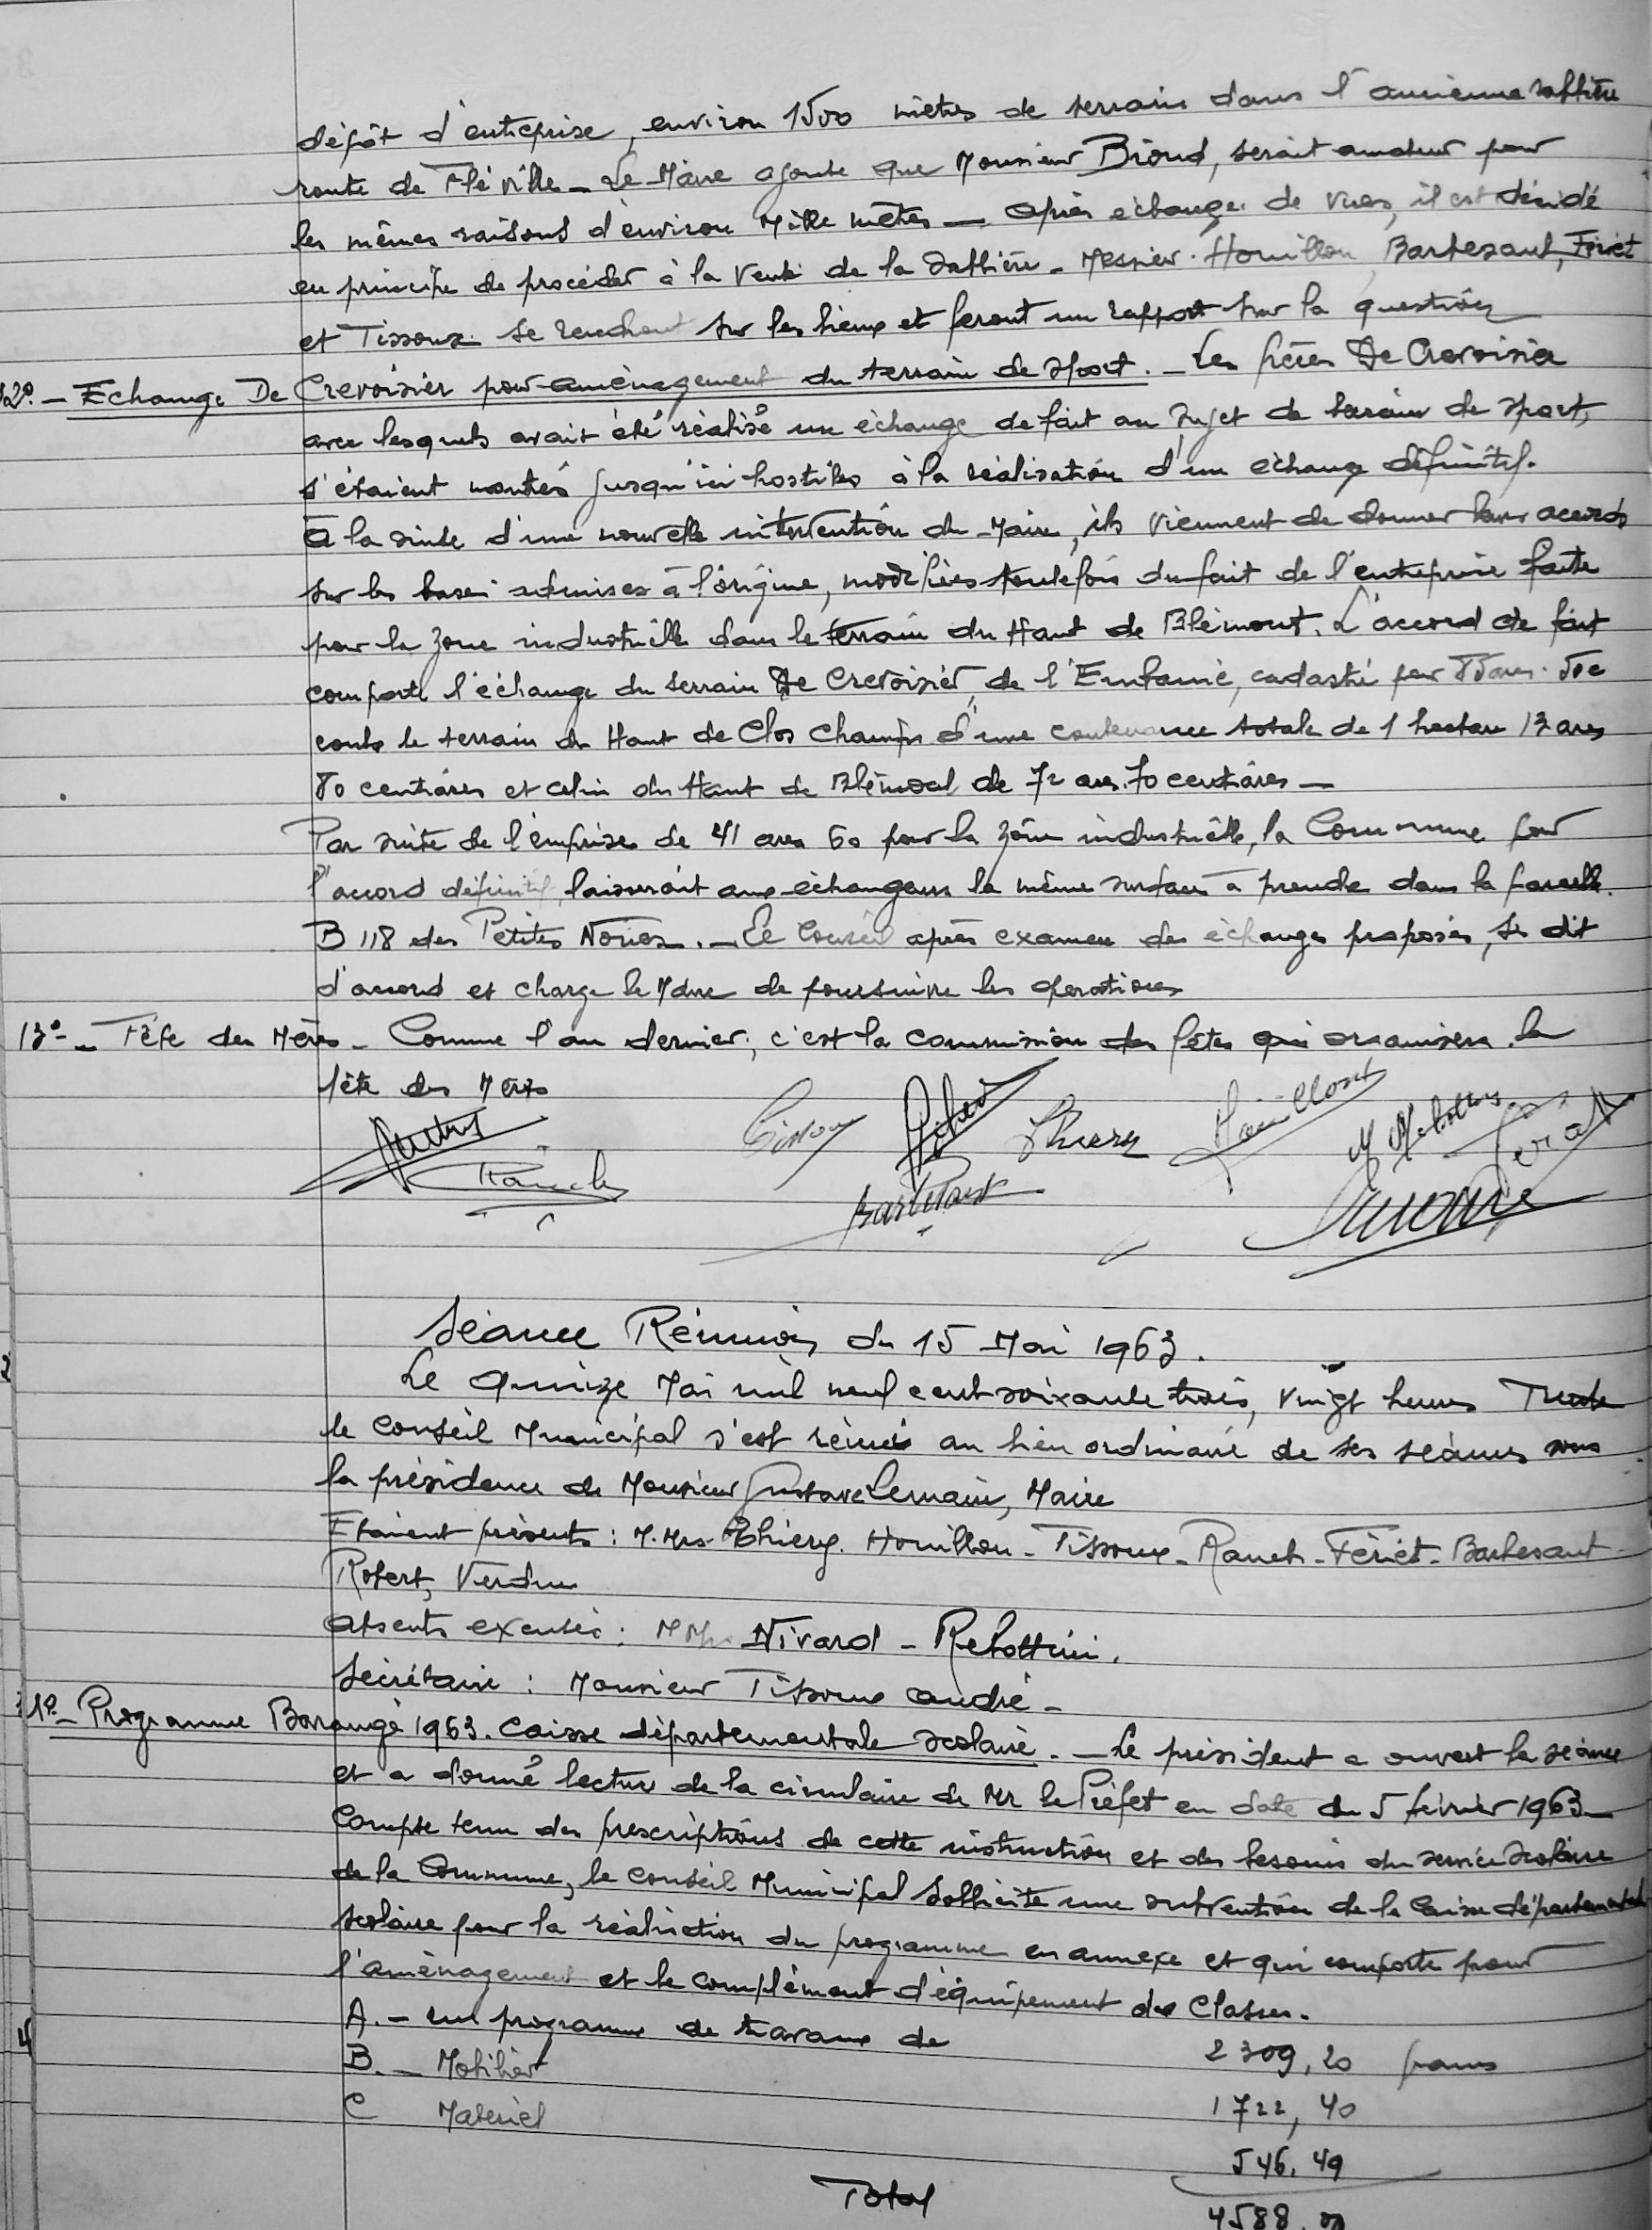 dépôt d'entreprise, environ 1500 mètres de terrain dans l'ancienne sablière
route de Fléville - Le Maire ajoute que Monsieur Brond, serait amateur pour
les mêmes raisons d'environ Mille mètres - après échange de vues, il est décidé
en principe de procéder à la vente de la sablière - Messieurs Houillon, Barbesant, Fériet
et Tissoux se rendront sur les lieux et feront un rapport sur la question
12° - Echange De Crevoisier pour aménagement du terrain de sport. - Les frères De Crevoisier
avec lesquels avait été réalisé un échange de fait au sujet de terrain de sport,
s'étaient montrés jusqu'ici hostiles à la réalisation d'un échange définitif.
A la suite d'une nouvelle intervention du Maire, ils viennent de donner leur accord
sur les bases admises à l'origine, modifiées toutefois du fait de l'entreprise faite
pour la zone industrielle dans le terrain du Haut de Blémont. L'accord de fait
comporte l'échange du terrain De Crevoisier, de l', cadastré pour
contre le terrain du Haut de Clos Champs d'une contenance totale de 1 hectare 13 ares
80 centiares et celui du Haut de de 72 ares 70 centiares -
Par suite de l'emprise de 41 ares 60 pour la zône industrielle, la Commune pour
l'accord définitif, laisserait aux échangeurs la même surface à prendre dans la parcelle
B 118 des Petites Noires. - Le Conseil après examen des échanges proposés, se dit
d'accord et charge le Maire de poursuivre les opérations
13° - Fête des Mères - Comme l'an dernier, c'est la commission des fêtes qui organisera la
fête des Mères
Houillon
Thiery
Rauch
Barbesant
Séance Réunion du 15 Mai 1963.
Le quinze Mai mil neuf cent soixante trois, vingt heures Trente
le Conseil Municipal s'est réuni au lieu ordinaire de ses séances sous
la présidence de Monsieur Gustave Lemain, Maire
Etaient présents : M. Mrs. Thiery. Houillon - Tissoux - Rauch - Fériet - Barbesant -
Robert, Verdun
Absents excusés : M Mrs Nivard - Rebottini.
Secrétaire : Monsieur Tissoux André -
1° - Programme Barangé 1963. Caisse départementale scolaire. - Le président a ouvert la séance
et a donné lecture de la circulaire de Mr le Préfet en date du 5 février 1963 -
Compte tenu des prescriptions de cette instruction et des besoins du service scolaire
de la Commune, le Conseil Municipal sollicite une subvention de la Caisse départementale
scolaire pour la réalisation du programme en annexe et qui comporte pour
l'aménagement et le complément d'équipement des classes.
A. - un programme de travaux de 2 309, 20 francs
B. - Mobilier 1 722, 40
C Matériel 546. 49
Total 4588.